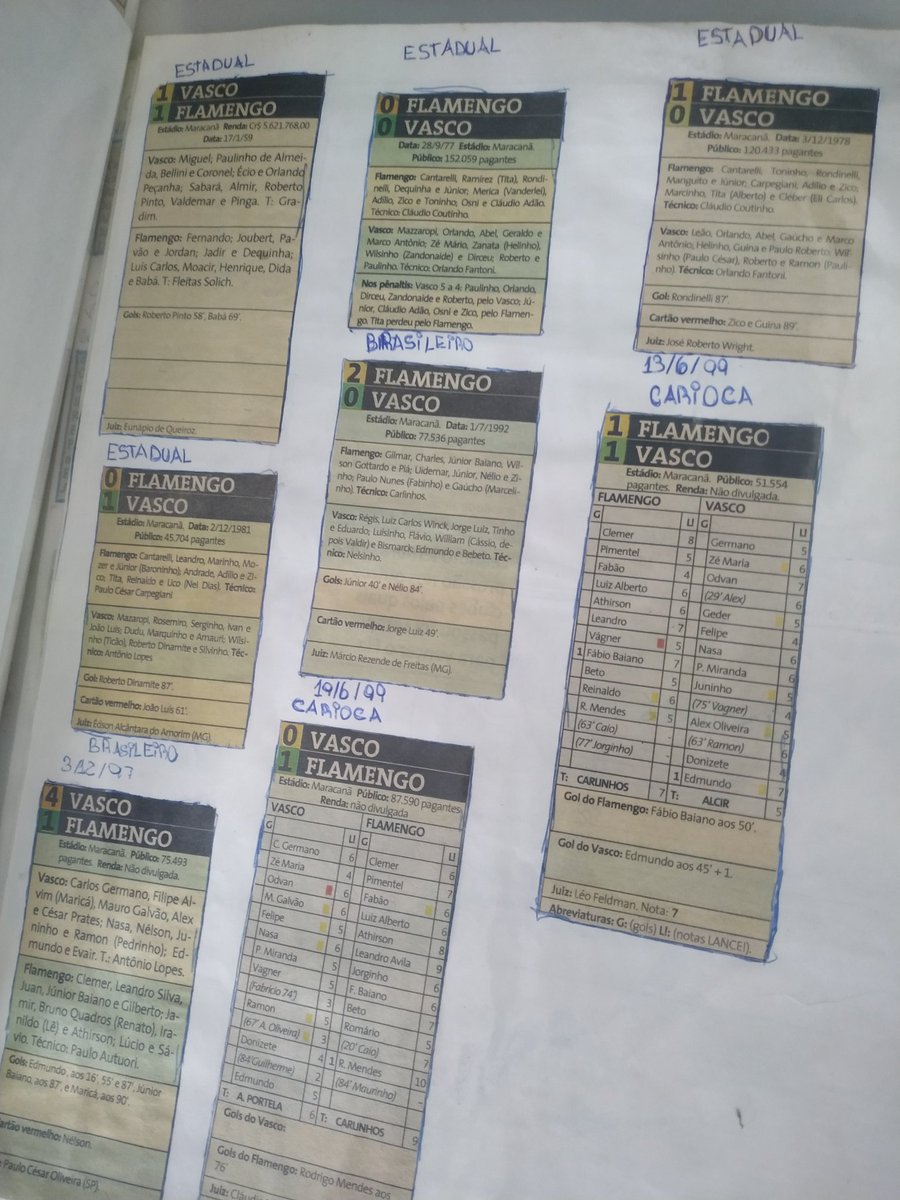 ESTADUAL
1 VASCO
1 FLAMENGO
Estádio: Maracanã Renda: Cr$ 5.621.768,00
Data: 17/1/59
Vasco: Miguel; Paulinho de Almei-
da, Bellini e Coronel; Écio e Orlando
Peçanha; Sabará, Almir, Roberto
Pinto, Valdemar e Pinga. T: Gra-
dim.
Flamengo: Fernando; Joubert, Pa-
vão e Jordan; Jadir e Dequinha;
Luís Carlos, Moacir, Henrique, Dida
e Babá. T: Fleitas Solich.
Gols: Roberto Pinto 58', Babá 69'.
Juiz: Eunápio de Queiroz.
ESTADUAL
0 FLAMENGO
0 VASCO
Data: 28/9/77 Estádio: Maracanã.
Público: 152.059 pagantes
Flamengo: Cantarelli, Ramirez (Tita), Rondi-
nelli, Dequinha e Júnior; Merica (Vanderlei),
Adílio, Zico e Toninho; Osni e Cláudio Adão.
Técnico: Cláudio Coutinho.
Vasco: Mazzaropi, Orlando, Abel, Geraldo e
Marco Antônio; Zé Mário, Zanata (Helinho),
Wilsinho (Zandonaide) e Dirceu; Roberto e
Paulinho. Técnico: Orlando Fantoni.
Nos pênaltis: Vasco 5 a 4: Paulinho, Orlando,
Dirceu, Zandonaide e Roberto, pelo Vasco; Jú-
nior, Cláudio Adão, Osni e Zico, pelo Flamen-
go. Tita perdeu pelo Flamengo.
ESTADUAL
1 FLAMENGO
0 VASCO
Estádio: Maracanã. Data: 3/12/1978
Público: 120.433 pagantes
Flamengo: Cantarelli, Toninho, Rondinelli,
Manguito e Júnior; Carpegiani, Adílio e Zico;
Marcinho, Tita (Alberto) e Cléber (Eli Carlos).
Técnico: Cláudio Coutinho.
Vasco: Leão, Orlando, Abel, Gaúcho e Marco
Antônio; Helinho, Guina e Paulo Roberto. Wil-
sinho (Paulo César), Roberto e Ramon (Pauli-
nho). Técnico: Orlando Fantoni.
Gol: Rondinelli 87'.
Cartão vermelho: Zico e Guina 89'.
Juiz: José Roberto Wright.
ESTADUAL
0 FLAMENGO
1 VASCO
Estádio: Maracanã. Data: 2/12/1981
Público: 45.704 pagantes
Flamengo: Cantarelli, Leandro, Marinho, Mo-
zer e Júnior (Baroninho); Andrade, Adílio e Zi-
co; Tita, Reinaldo e Lico (Nei Dias). Técnico:
Paulo César Carpegiani
Vasco: Mazaropi, Rosemiro, Serginho, Ivan e
João Luís; Dudu, Marquinho e Amauri; Wilsi-
nho (Ticão), Roberto Dinamite e Silvinho. Téc-
nico: Antônio Lopes
Gol: Roberto Dinamite 87'.
Cartão vermelho: João Luís 61'.
Juiz: Édson Alcântara do Amorim (MG).
BRASILEIRO
2 FLAMENGO
0 VASCO
Estádio: Maracanã. Data: 1/7/1992
Público: 77.536 pagantes
Flamengo: Gilmar, Charles, Júnior Baiano, Wil-
son Gottardo e Piá; Uidemar, Júnior, Nélio e Zi-
nho; Paulo Nunes (Fabinho) e Gaúcho (Marceli-
nho). Técnico: Carlinhos.
Vasco: Régis, Luiz Carlos Winck, Jorge Luiz, Tinho
e Eduardo; Luisinho, Flávio, William (Cássio, de-
pois Valdir) e Bismarck; Edmundo e Bebeto. Téc-
nico: Nelsinho.
Gols: Júnior 40' e Nélio 84'.
Cartão vermelho: Jorge Luiz 49'.
Juiz: Márcio Rezende de Freitas (MG).
13/6/99
CARIOCA
1 FLAMENGO
1 VASCO
Estádio: Maracanã. Público: 51.554
pagantes. Renda: Não divulgada.
FLAMENGO VASCO
G LI G LI
Clemer 8 Germano 5
Pimentel 5 Zé Maria 6
Fabão 4 Odvan 7
Luiz Alberto 6 (29' Alex) 6
Athirson 6 Geder 5
Leandro 7 Felipe 4
Vágner 5 Nasa 6
1 Fábio Baiano 7 P. Miranda 6
Beto 5 Juninho 5
Reinaldo 6 (75' Vagner) 4
R. Mendes 5 Alex Oliveira 5
(63' Caio) - (63' Ramon) 6
(77' Jorginho) - Donizete 4
1 Edmundo 7
T: CARLINHOS 7 T: ALCIR 5
Gol do Flamengo: Fábio Baiano aos 50'.
Gol do Vasco: Edmundo aos 45' + 1.
Juiz: Léo Feldman. Nota: 7
Abreviaturas: G: (gols) LI: (notas LANCE!).
BRASILEIRO
3/12/97
4 VASCO
1 FLAMENGO
Estádio: Maracanã. Público: 75.493
pagantes. Renda: Não divulgada.
Vasco: Carlos Germano, Filipe Al-
vim (Maricá), Mauro Galvão, Alex
e César Prates; Nasa, Nélson, Ju-
ninho e Ramon (Pedrinho); Ed-
mundo e Evair. T.: Antônio Lopes.
Flamengo: Clemer, Leandro Silva,
Juan, Júnior Baiano e Gilberto; Ja-
mir, Bruno Quadros (Renato), Ira-
nildo (Lê) e Athirson; Lúcio e Sá-
vio. Técnico: Paulo Autuori.
Gols: Edmundo, aos 16', 55' e 87', Júnior
Baiano, aos 87', e Maricá, aos 90'.
artão vermelho: Nélson.
Paulo César Oliveira (SP).
19/6/99
CARIOCA
0 VASCO
1 FLAMENGO
Estádio: Maracanã Público: 87.590 pagantes
Renda: não divulgada
VASCO FLAMENGO
G LI G LI
C. Germano 6 Clemer 6
Zé Maria 4 Pimentel 7
Odvan 6 Fabão 6
M. Galvão 6 Luiz Alberto 6
Felipe 5 Athirson 8
Nasa 6 Leandro Avila 9
P. Miranda 5 Jorginho 6
Vágner 5 F. Baiano 6
(Fabrício 74') 3 Beto 7
Ramon 5 Romário 5
(67' A. Oliveira) 3 (20' Caio) 7
Donizete 4 1 R. Mendes 10
(84'Guilherme) 2 (84' Maurinho) -
Edmundo 5
T: A. PORTELA 6 T: CARLINHOS 9
Gols do Vasco:
Gols do Flamengo: Rodrigo Mendes aos
76'